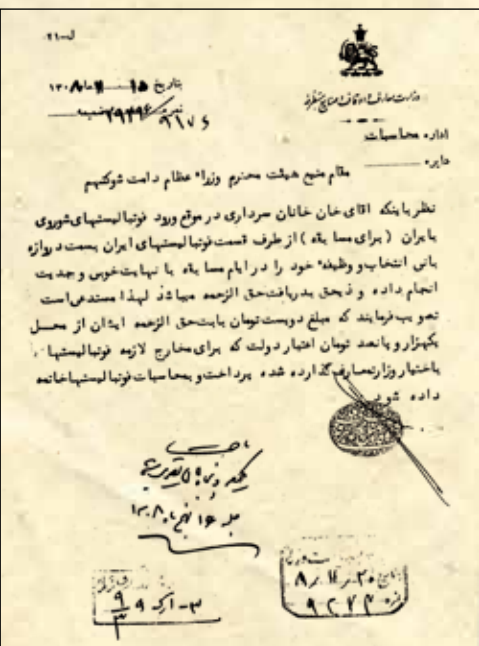 ل-۲۱۰
وزارت معارف و اوقاف و صنایع مستظرفه
بتاریخ ۱۵ ماه ۱۱ ۱۳۰۸
اداره محاسبات
دایره
مقام منیع هیئت محترم وزراء عظام دامت شوکتهم
نظر باینکه اقای خان خانان سرداری در موقع ورود فوتبالیستهای شوروی
بایران (برای مسابقه) از طرف قسمت فوتبالیستهای ایران بسمت دروازه
بانی انتخاب و وظیفه خود را در ایام مسابقه با نهایت خوبی و جدیت
انجام داده و ذیحق بدریافت حق الزحمه میباشد لهذا مستدعی است
تصویب فرمایند که مبلغ دویست تومان بابت حق الزحمه ایشان از محل
یکهزار و پانصد تومان اعتبار دولت که برای مخارج لازمه فوتبالیستها
باختیار وزارت معارف گذارده شده پرداخت و بمحاسبات فوتبالیستها خاتمه
داده شود